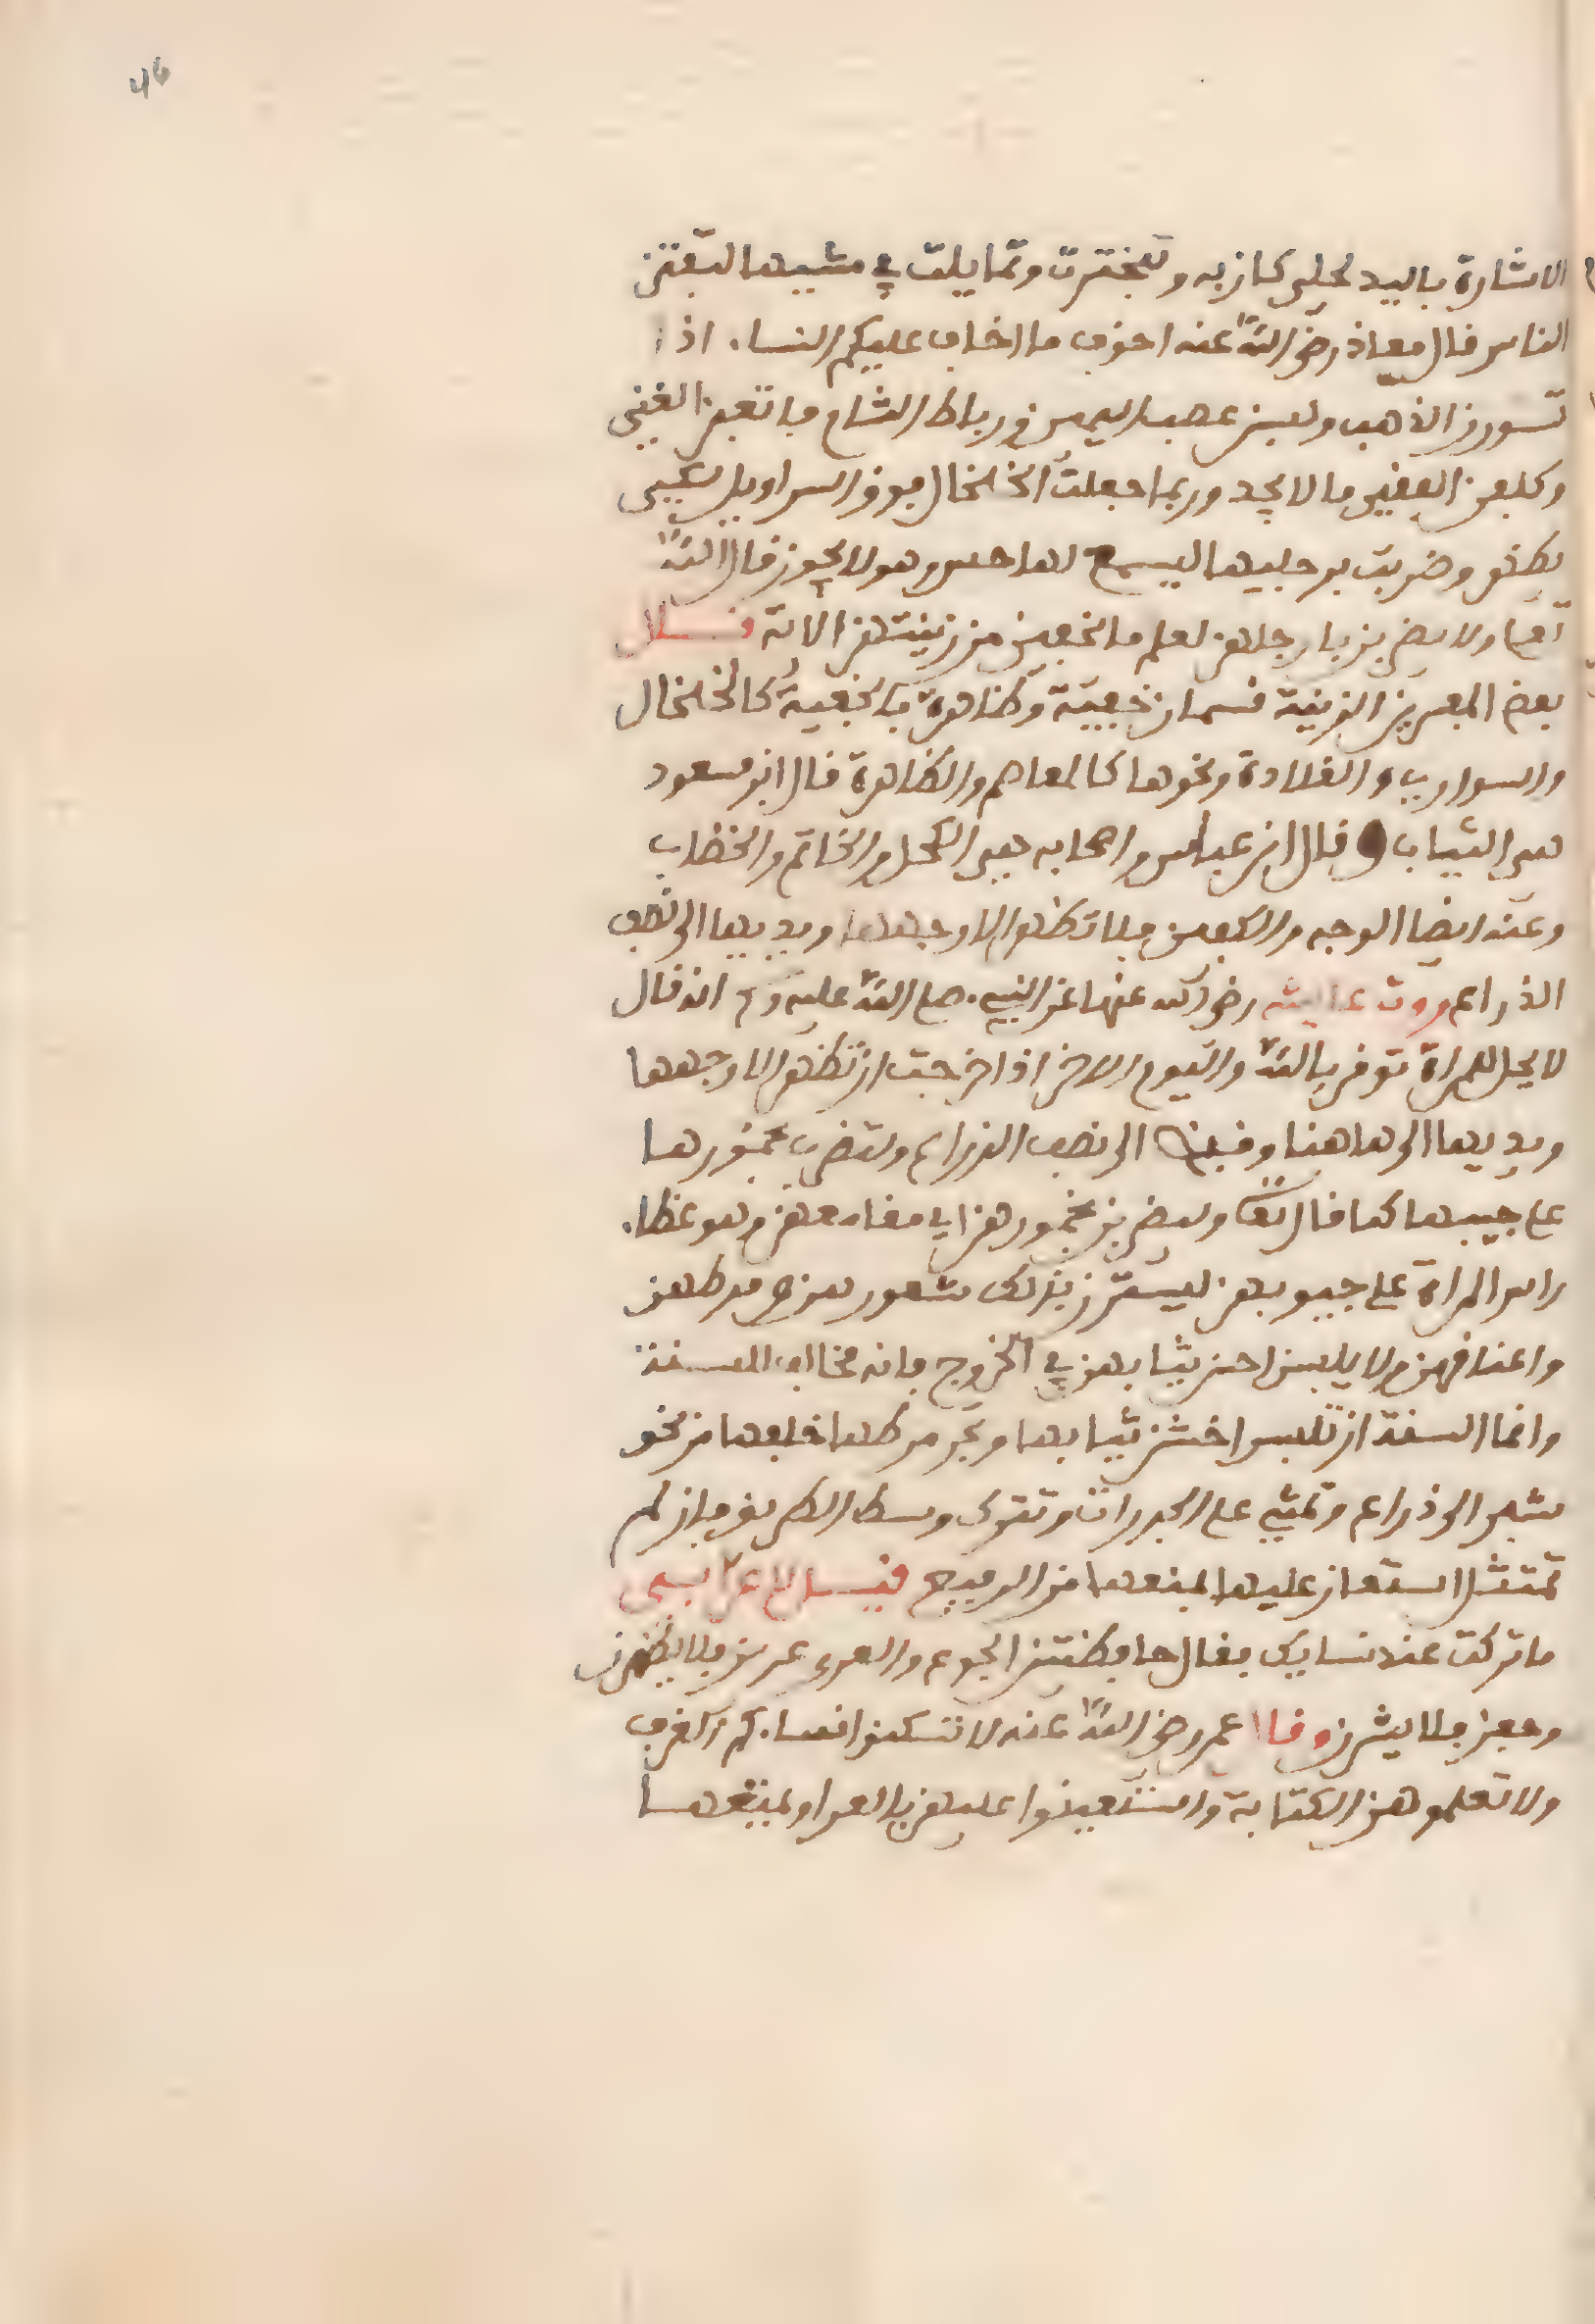 46
الاشارة باليد لحلي كان به وتبخترت وتمايلت في مشيها لتفتن
الناس قال معاذ رضي الله عنه اخوف ما اخاف عليكم النساء اذا
تسورن الذهب ولبسن عصب اليمن ورباط الشام فاتعبن الغني
وكلفن الفقير ما لا يجد وربما جعلت الخلخال فوق السراويل لكي
يظهر وضربت برجليها ليسمع لها حس وهو لا يجوز قال الله
تعالى ولا يضربن بارجلهن ليعلم ما يخفين من زينتهن الاية قال
بعض المفسرين الزينة قسمان خفية وظاهرة فالخفية كالخلخال
والسوارين والقلادة ونحوها كالمعاصم والظاهرة قال ابن مسعود
هي الثياب وقال ابن عباس واصحابه هي الكحل والخاتم والخضاب
وعنه ايضا الوجه والكفين فلا تظهر الا وجهها ويديها الى نصف
الذراع روت عائشة رضي الله عنها عن النبي صلى الله عليه وسلم انه قال
لا يحل لامراة تومن بالله واليوم الاخر اذا خرجت ان تظهر الا وجهها
ويديها الى هاهنا وقبض الى نصف الذراع ولتضرب بخمورها
على جيبها كما قال تعالى وليضربن بخمورهن اي مقانعهن وهو غطاء
راس المراة على جيوبهن ليسترن بذلك شعورهن وقرطهن
واعناقهن ولا يلبسن احسن ثيابهن في الخروج فانه مخالف للسنة
وانما السنة ان تلبس اخشن ثيابها وتجر مرطها خلفها من نحو
شبر الى ذراع وتمشي على الجدرات وتترك وسط الطريق فان لم
تمتثل استعان عليها لمنعها من الرفيع قيل لاعرابي
ما تركت عند نسايك فقال حافظتين الجوع والعرى عرين فلا يظهرن
وجعن فلا يشرن وقال عمر رضي الله عنه لا تسكنوا نساءكم الغرف
ولا تعلموهن الكتابة واستعينوا عليهن بالعرا ولمنعها